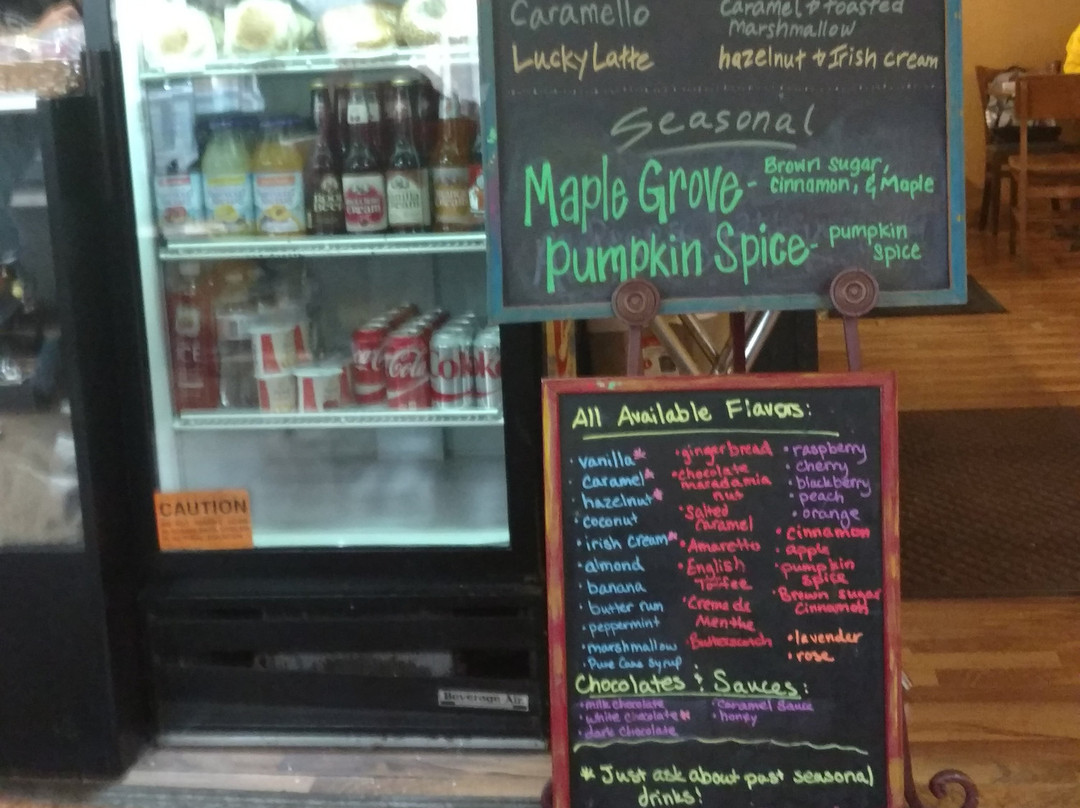 Caramello
Caramel & toasted
Marshmallow
Lucky Latte
hazelnut & Irish cream
Seasonal
Maple Grove -
Brown sugar,
Cinnamon, & Maple
Pumpkin Spice -
pumpkin
spice
CAUTION
Coke
Beverage Air
All Available Flavors:
• vanilla*
• caramel*
• hazelnut*
• coconut
• irish cream*
• almond
• banana
• butter rum
• peppermint
• marshmallow
• Pure Cane Syrup
• gingerbread
• chocolate
macadamia
nut
• Salted
Caramel
• Amaretto
• English
Toffee
• Creme de
Menthe
• Butterscotch
• raspberry
• cherry
• blackberry
• peach
• orange
• Cinnamon
• apple
• pumpkin
spice
• Brown sugar
Cinnamon
• lavender
• rose
Chocolates & Sauces:
• milk chocolate
• white chocolate*
• dark chocolate
• Caramel Sauce
• honey
* Just ask about past seasonal
drinks!